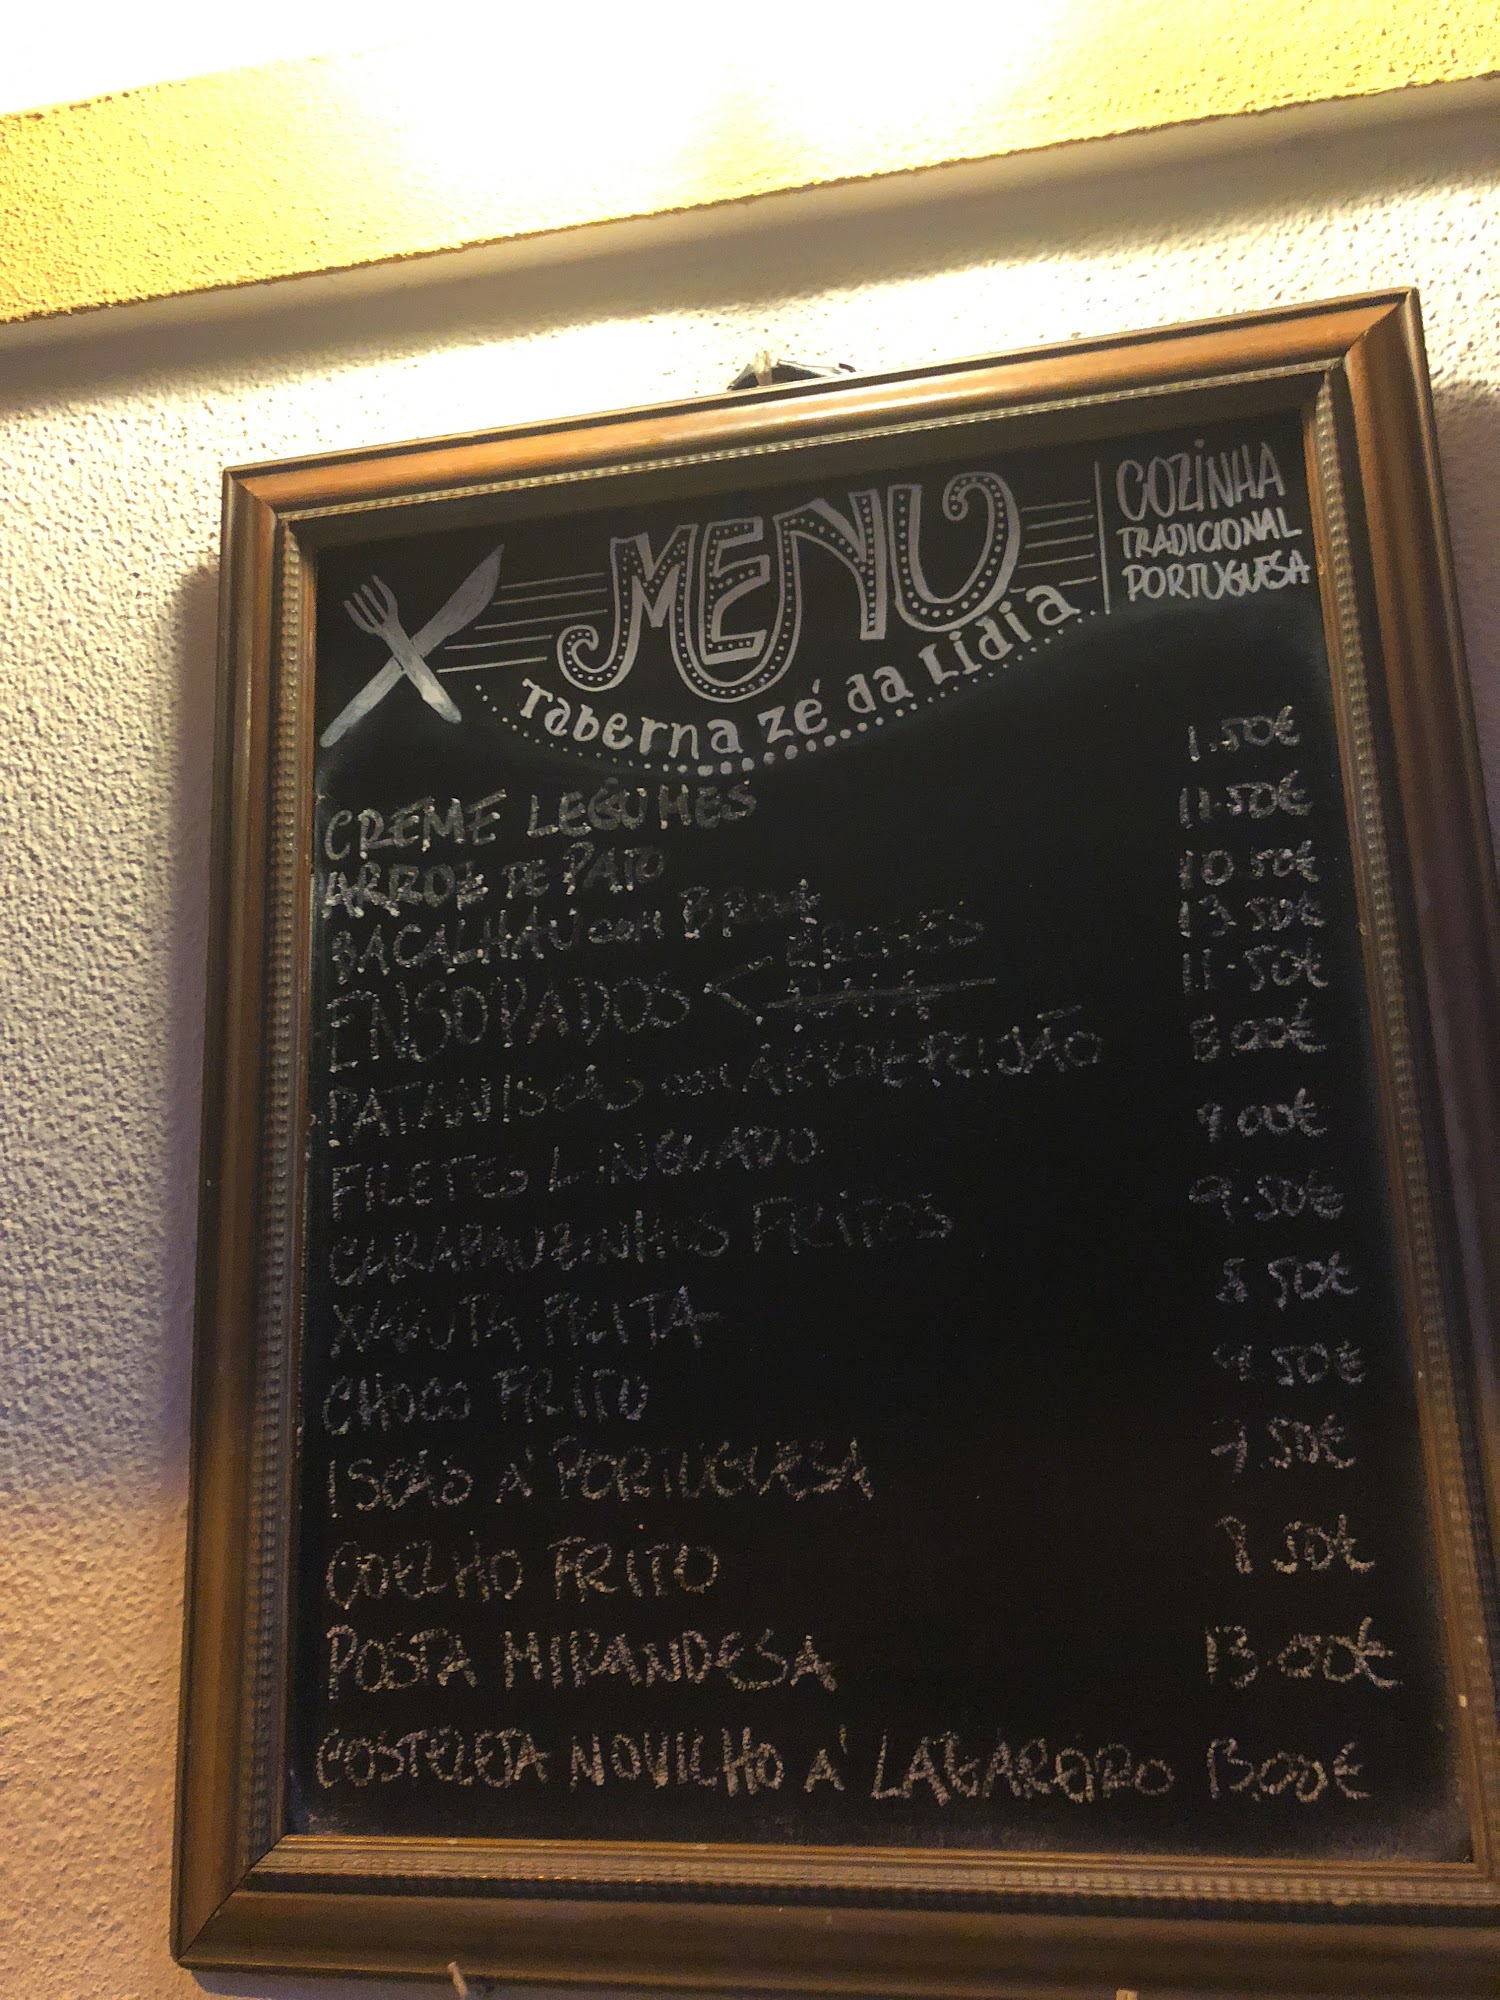 MENU
Taberna zé da Lidia
COZINHA
TRADICIONAL
PORTUGUESA
CREME LEGUMES 1.50€
ARROZ DE PATO 11.50€
BACALHAU COM 10.50€
ENSOPADOS 13.50€
PATANISCAS COM FEIJÃO 11.50€
FILETES LINGUADO
CARAPAUZINHOS FRITOS 9.00€
FRITA 9.50€
CHOCO FRITO 8.50€
ISCAS A' PORTUGUESA
COELHO FRITO
POSTA MIRANDESA 13.00€
COSTELETA NOVILHO A' LAGAREIRO 13.00€